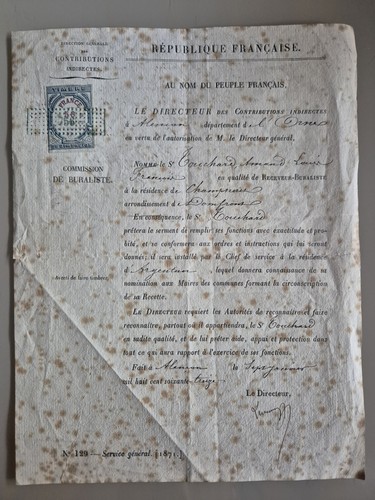 DIRECTION GÉNÉRALE
DES
CONTRIBUTIONS
INDIRECTES
RÉPUBLIQUE FRANÇAISE.
AU NOM DU PEUPLE FRANÇAIS.
LE DIRECTEUR DES CONTRIBUTIONS INDIRECTES
à Alençon département de l'Orne
en vertu de l'autorisation de M. le Directeur général,
COMMISSION
DE BURALISTE.
NOMME le Sr Touchard Amand Louis
François en qualité de RECEVEUR-BURALISTE
à la résidence de
arrondissement de Domfront
En conséquence, le Sr Touchard
prêtera le serment de remplir ses fonctions avec exactitude et probité,
et se conformera aux ordres et instructions qui lui seront
donnés; il sera installé par le Chef de service à la résidence
d'Argentan lequel donnera connaissance de sa
nomination aux Maires des communes formant la circonscription
de sa Recette.
LE DIRECTEUR requiert les Autorités de reconnaître et faire
reconnaître, partout où il appartiendra, le Sr Touchard
en ladite qualité, et de lui prêter aide, appui et protection dans
tout ce qui aura rapport à l'exercice de ses fonctions.
Fait à Alençon le sept janvier
mil huit cent soixante treize
Le Directeur,
No 129 — Service général. (1871.)